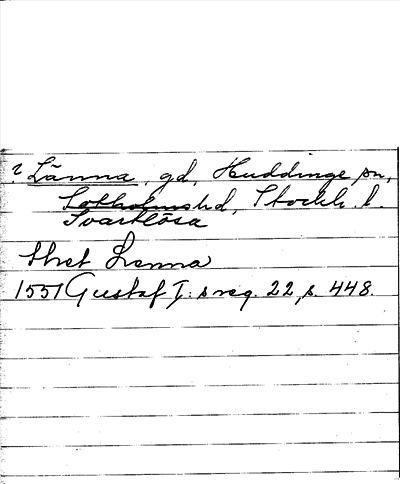 ? Länna, gd, Huddinge sn,
Sotholms hd, Stockh. l.
Svartlösa
thet Lenna
1551 Gustaf I: s reg. 22, s. 448.